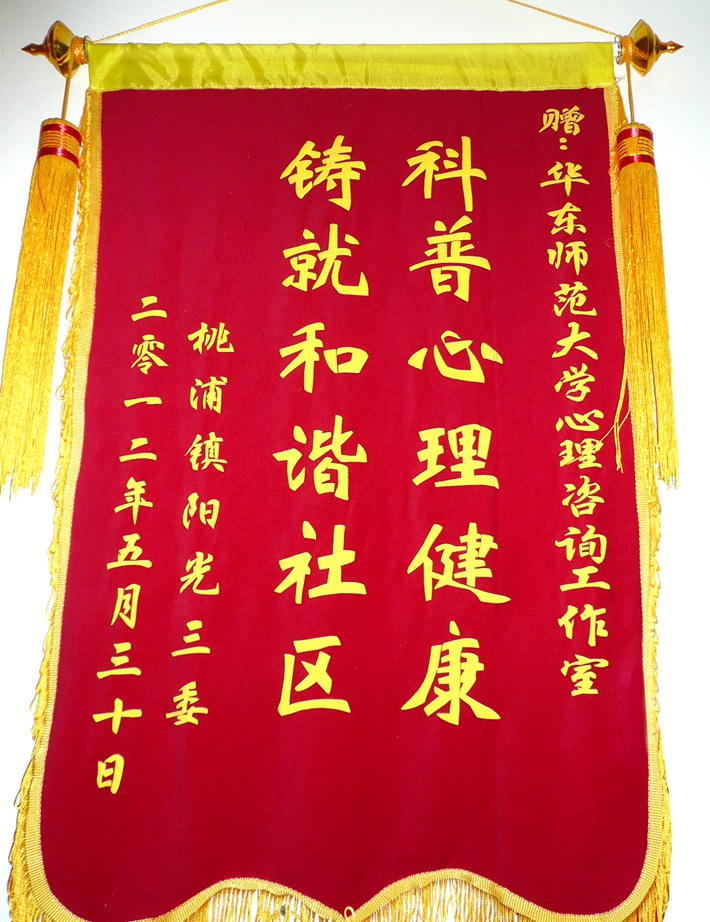 赠：华东师范大学心理咨询工作室
科普心理健康
铸就和谐社区
桃浦镇阳光三委
二零一二年五月三十日